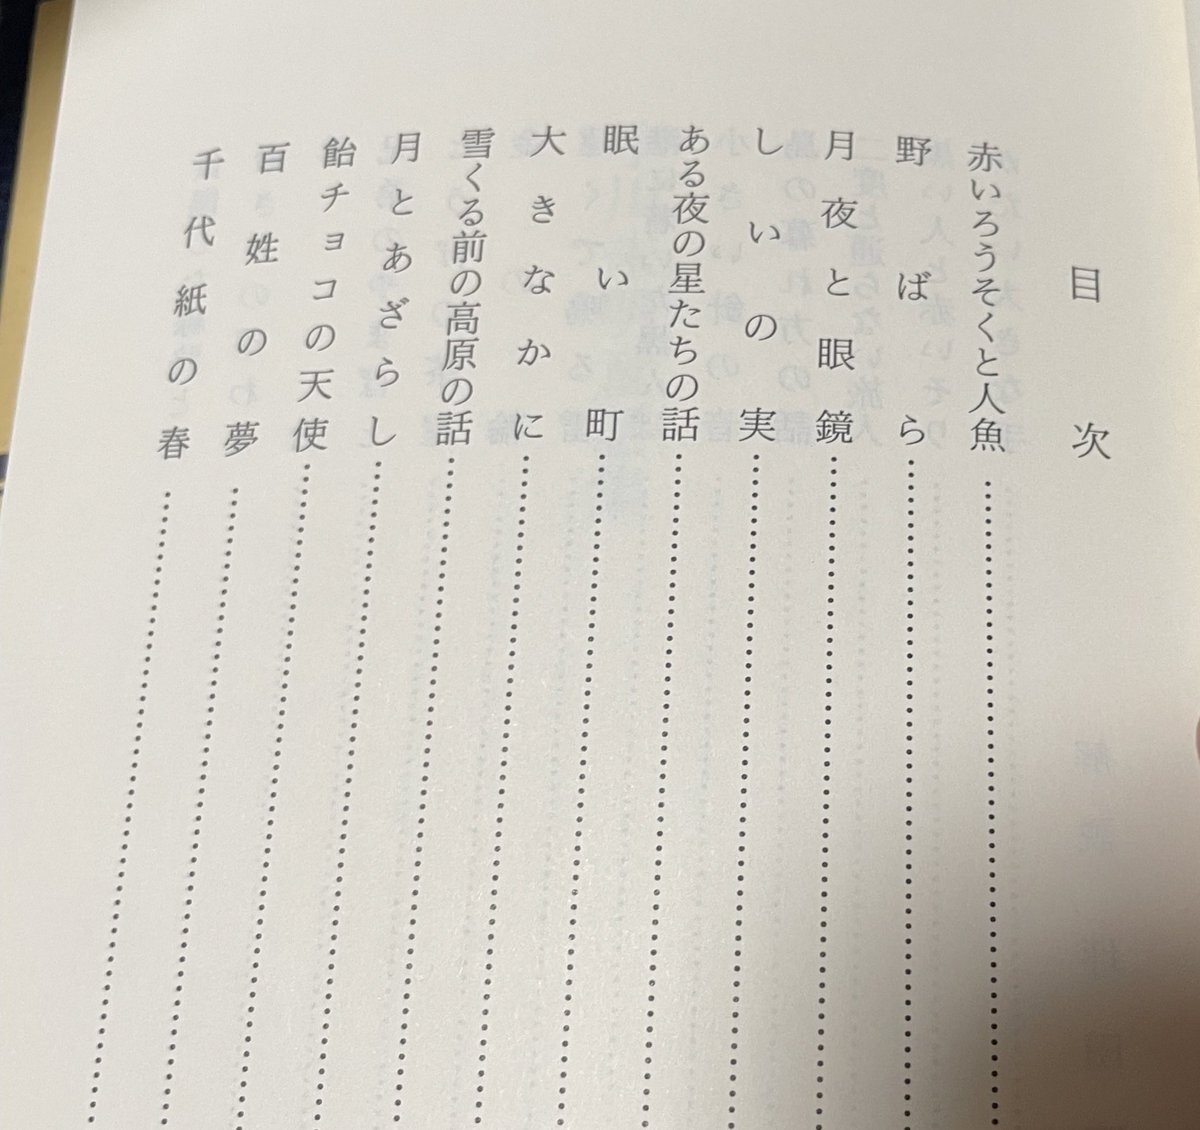 目次
赤いろうそくと人魚
野ばら
月夜と眼鏡
しいの実
ある夜の星たちの話
眠い町
大きなかに
雪くる前の高原の話
月とあざらし
飴チョコの天使
百姓の夢
千代紙の春